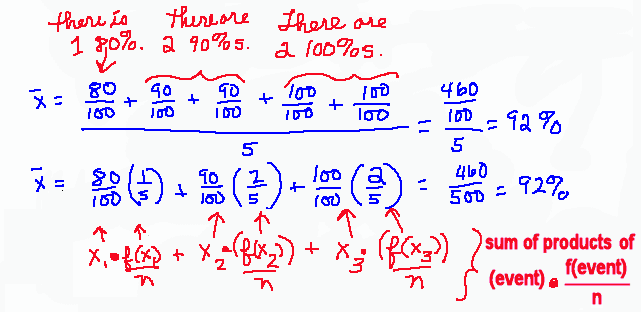 there is There are There are
1 80%. 2 90%s. 2 100%s.
x̄ = 80/100 + 90/100 + 90/100 + 100/100 + 100/100 / 5 = 460/100 / 5 = 92%
x̄ = 80/100 (1/5) + 90/100 (2/5) + 100/100 (2/5) = 460/500 = 92%
x₁ • f(x₁)/n + x₂ • (f(x₂))/n + x₃ • (f(x₃))/n } sum of products of
(event) • f(event)/n